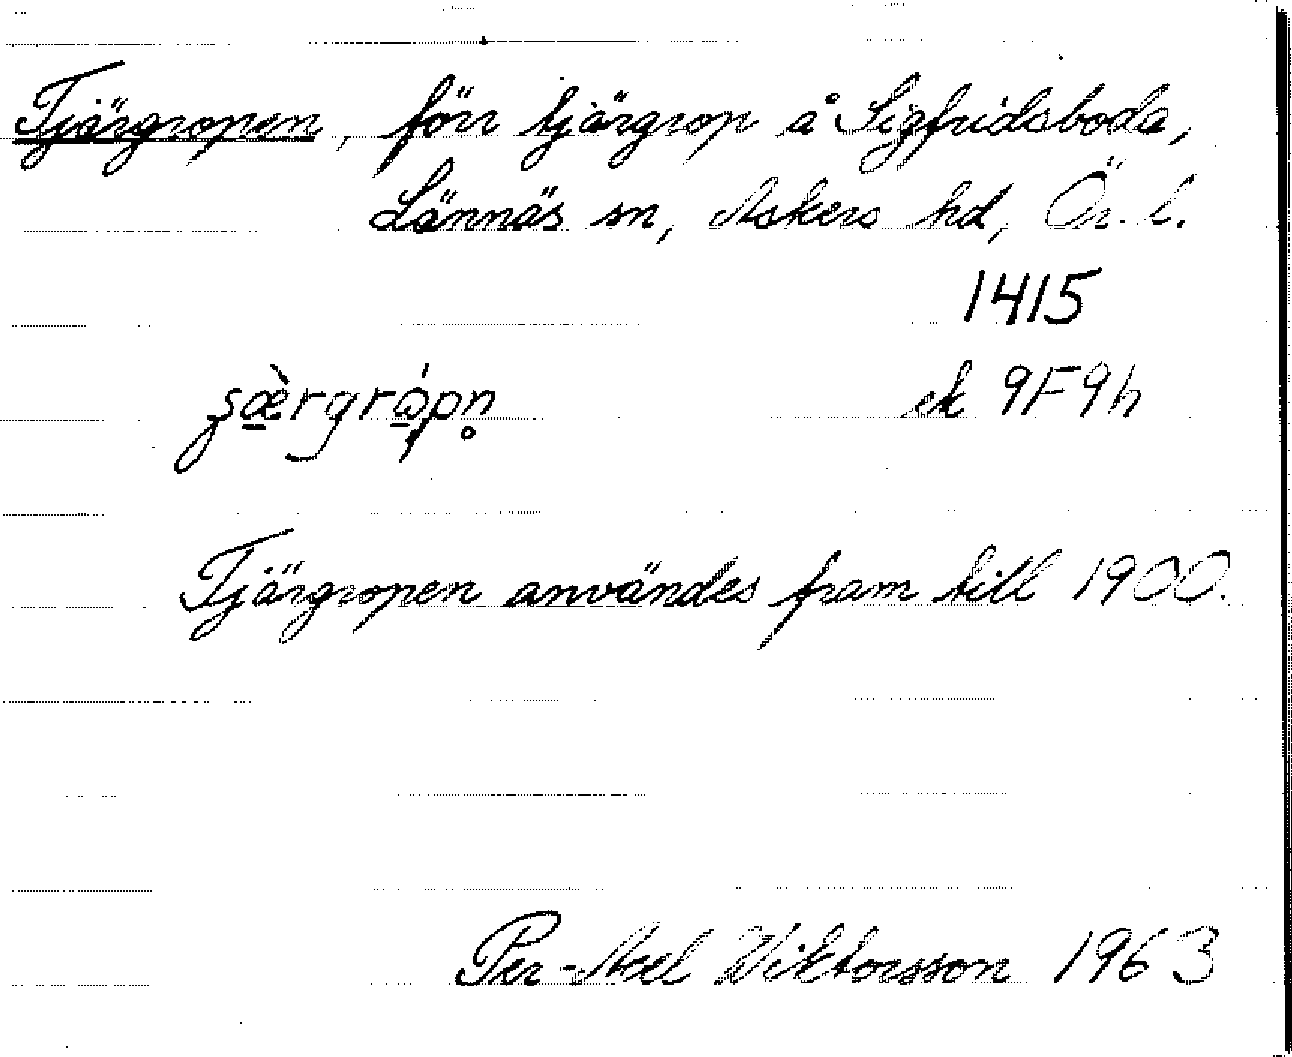 Tjärgropen, förr tjärgrop å Sigfridsboda,
Lännäs sn, Askers hd, Ör. l.
1415
ek 9F9h
Tjärgropen användes fram till 1900.
Per-Axel Viktorsson 1963